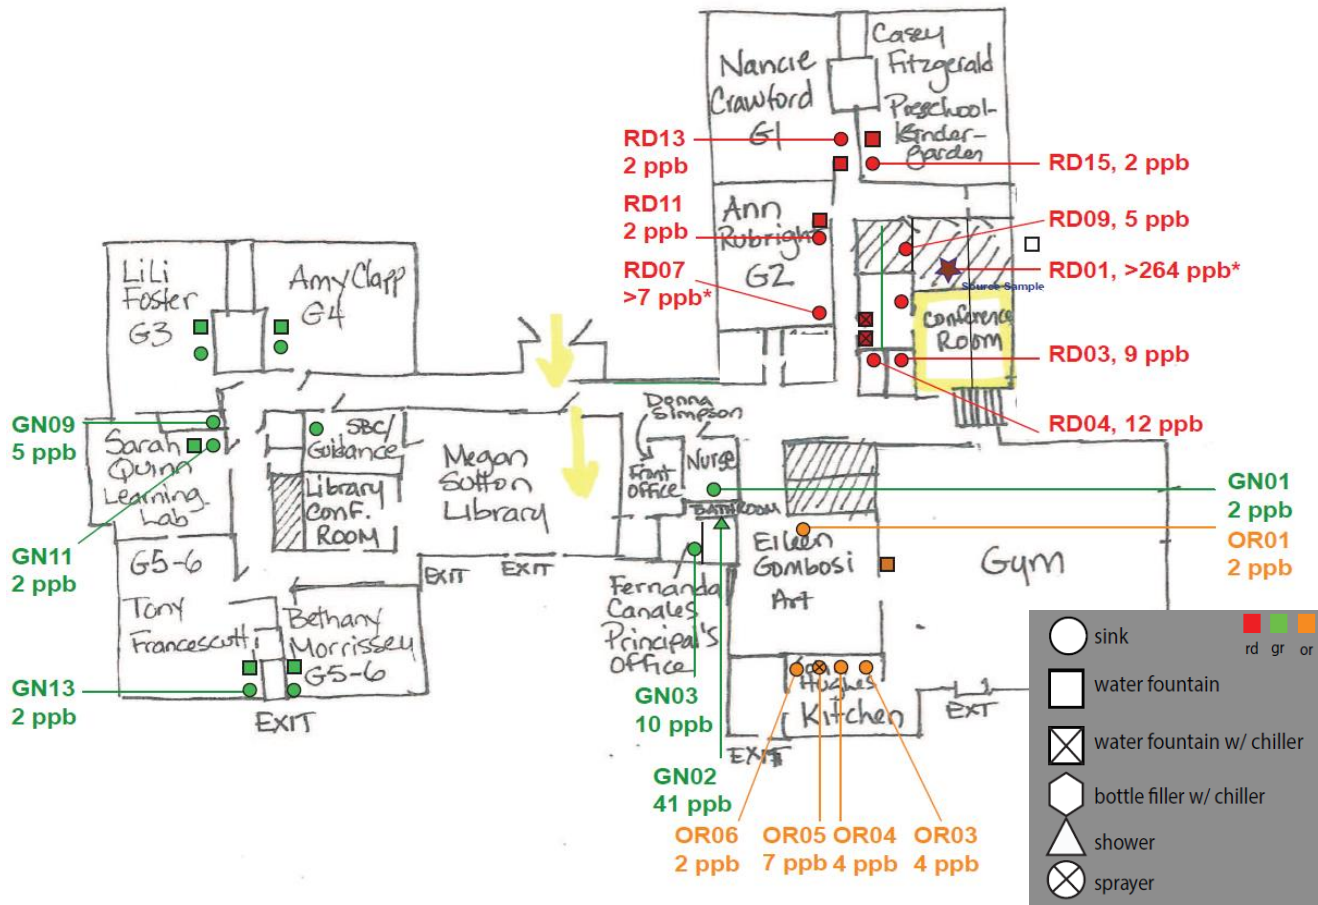 Nancie
Crawford
G1
Casey
Fitzgerald
Preschool-
Kinder-
garden
RD13
2 ppb
RD15, 2 ppb
RD11
2 ppb
Ann
Rubright
G2
RD09, 5 ppb
RD07
>7 ppb*
RD01, >264 ppb*
Source Sample
Conference
Room
RD03, 9 ppb
RD04, 12 ppb
LiLi
Foster
G3
Amy Clapp
G4
GN09
5 ppb
Sarah
Quinn
Learning
Lab
SBC/
Guidance
Library
Conf.
ROOM
Megan
Sutton
Library
Donna
Simpson
Front
Office
Nurse
BATHROOM
GN01
2 ppb
OR01
2 ppb
GN11
2 ppb
G5-6
Tony
Francescutti
Bethany
Morrissey
G5-6
EXIT
EXIT
Eileen
Gombosi
Art
Gym
Fernanda
Canales
Principal's
Office
GN13
2 ppb
EXIT
GN03
10 ppb
GN02
41 ppb
Hughes
Kitchen
EXIT
EXT
OR06
2 ppb
OR05
7 ppb
OR04
4 ppb
OR03
4 ppb
sink
rd gr or
water fountain
water fountain w/ chiller
bottle filler w/ chiller
shower
sprayer